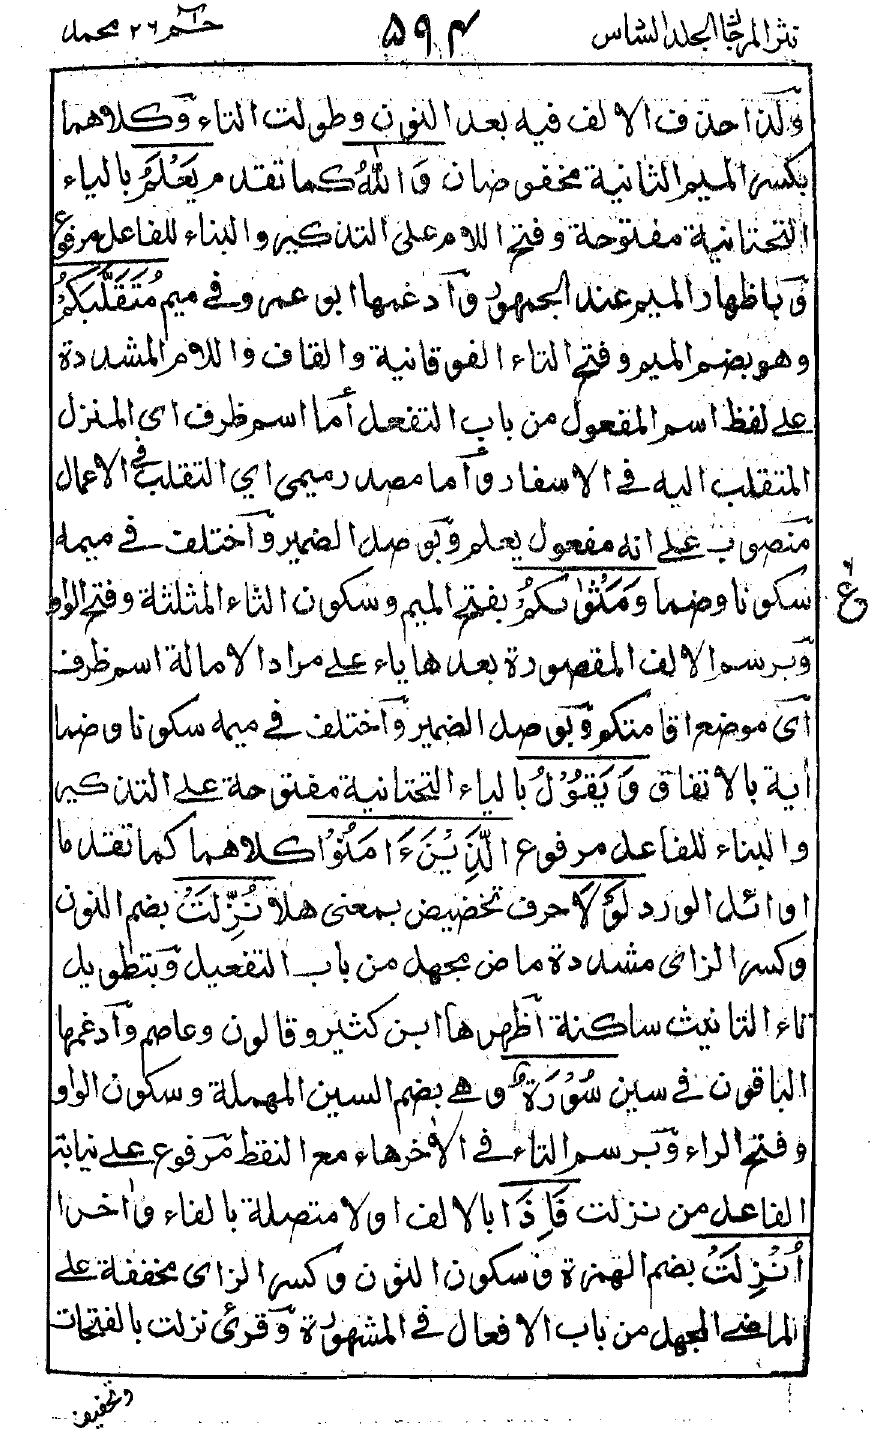 نثر المرجان الجلد السادس ۵۹۴ حٰم ۲۶ محمد
ولذا حذف الالف فيه بعد النون وطولت التاء وكلاهما
بكسر الميم الثانية مخفوضان وَاللّٰهُ كما تقدم يَعْلَمُ بالياء
التحتانية مفتوحة وفتح اللام على التذكير والبناء للفاعل مرفوع
وباظهار الميم عند الجمهور وادغمها ابو عمرو في ميم مُتَقَلَّبَكُمْ
وهو بضم الميم وفتح التاء الفوقانية والقاف واللام المشددة
على لفظ اسم المفعول من باب التفعل أما اسم ظرف اى المنزل
المتقلب اليه في الاسفار وأما مصدر ميمى اي التقلب في الاعمال
منصوب على انه مفعول يعلم وبوصل الضمير واختلف في ميمه
سكونا وضما وَمَثْوٰىكُمْ بفتح الميم وسكون الثاء المثلثة وفتح الواو
وبرسم الالف المقصورة بعدها ياء على مراد الامالة اسم ظرف
اى موضع اقامتكم وبوصل الضمير واختلف في ميمه سكونا وضما
أية بالاتفاق وَيَقُوْلُ بالياء التحتانية مفتوحة على التذكير
والبناء للفاعل مرفوع الَّذِيْنَ ءَامَنُوْا كلاهما كما تقدما
اوائل الورد لَوْلَا حرف تخضيض بمعنى هلا نُزِّلَتْ بضم النون
وكسر الزاى مشددة ماض مجهل من باب التفعيل وبتطويل
تاء التانيث ساكنة اظهرها ابن كثير وقالون وعاصم وادغمها
الباقون في سين سُوْرَةٌ وهي بضم السين المهملة وسكون الواو
وفتح الراء وبرسم التاء في الاخر هاء مع النقط مرفوع على نيابة
الفاعل من نزلت فَإِذَا بالالف اولا متصلة بالفاء واخرا
اُنْزِلَتْ بضم الهمزة وسكون النون وكسر الزاى مخففة على
الماضي المجهل من باب الافعال في المشهورة وقرئ نزلت بالفتحات
ع
وتخفيف